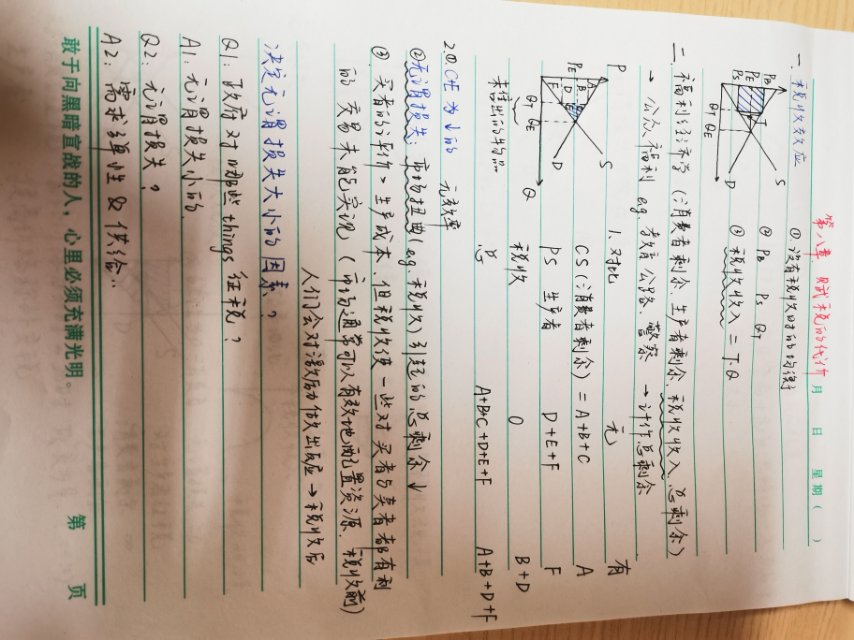 月 日 星期 ( )
第八章 赋税的代价
一. 税收效应
① 没有税收时的均衡
② PB PS QT
③ 税收收入 = T·Q
PB
PE
PS
T
S
D
QT QE
二. 福利经济学 (消费者剩余. 生产者剩余. 税收收入. 总剩余)
→ 公众福利 eg. 教育 公路. 警察 → 计作总剩余
1. 对比 无 有
CS (消费者剩余) = A+B+C A
PS 生产者 D+E+F F
税收 0 B+D
总 A+B+C+D+E+F A+B+D+F
P
PE
A
B C
D E
F
S
D
QT QE Q
未售出的物品
2. ① CE 为小的 无效率
② 无谓损失: 市场扭曲 (eg. 税收) 引起的总剩余↓
③ 买者的评价 > 生产成本. 但税收使一些对买者与卖者都有利
的交易未能实现 (市场通常可以有效地配置资源. 税收前)
人们会对激励做出反应 → 税收后
决定无谓损失大小的因素?
Q1: 政府对哪些things 征税?
A1: 无谓损失小的
Q2: 无谓损失?
A2: 需求弹性 & 供给..
敢于向黑暗宣战的人，心里必须充满光明。 第 页